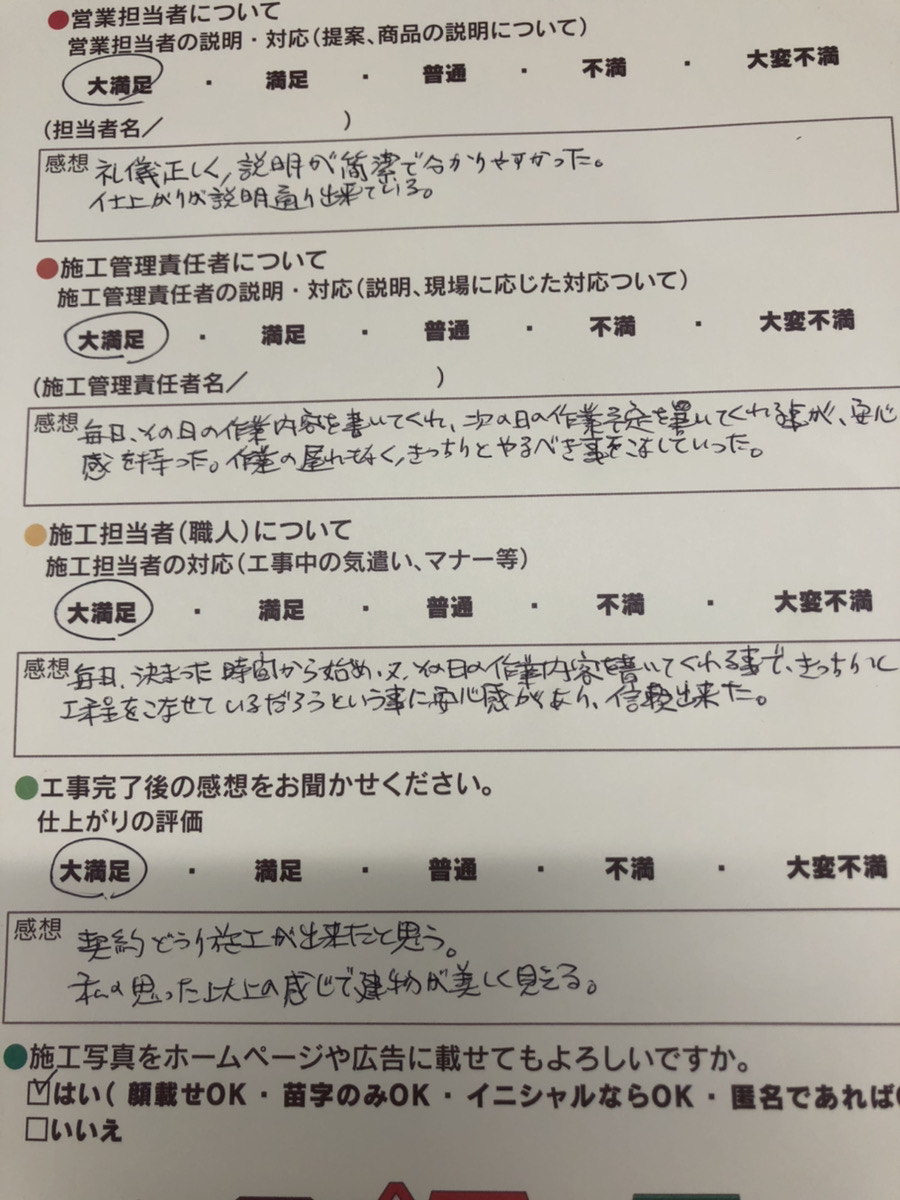 ●営業担当者について
営業担当者の説明・対応(提案、商品の説明について)
大満足 ・ 満足 ・ 普通 ・ 不満 ・ 大変不満
(担当者名/ )
感想 礼儀正しく、説明が簡潔で分かりやすかった。
仕上がりが説明通り出来ている。
●施工管理責任者について
施工管理責任者の説明・対応(説明、現場に応じた対応ついて)
大満足 ・ 満足 ・ 普通 ・ 不満 ・ 大変不満
(施工管理責任者名/ )
感想 毎日、その日の作業内容を書いてくれ、次の日の作業予定を置いてくれる事が、安心
感を持った。作業の遅れもなく、きっちりとやるべき事をこなしていった。
●施工担当者(職人)について
施工担当者の対応(工事中の気遣い、マナー等)
大満足 ・ 満足 ・ 普通 ・ 不満 ・ 大変不満
感想 毎日、決まった時間から始め、又、その日の作業内容を書いてくれる事で、きっちりと
工程をこなせているだろうという事に安心感があり、信頼出来た。
●工事完了後の感想をお聞かせください。
仕上がりの評価
大満足 ・ 満足 ・ 普通 ・ 不満 ・ 大変不満
感想 契約どうり施工が出来たと思う。
私の思った以上の感じで建物が美しく見える。
●施工写真をホームページや広告に載せてもよろしいですか。
☑はい( 顔載せOK ・ 苗字のみOK ・ イニシャルならOK ・ 匿名であれば
□いいえ